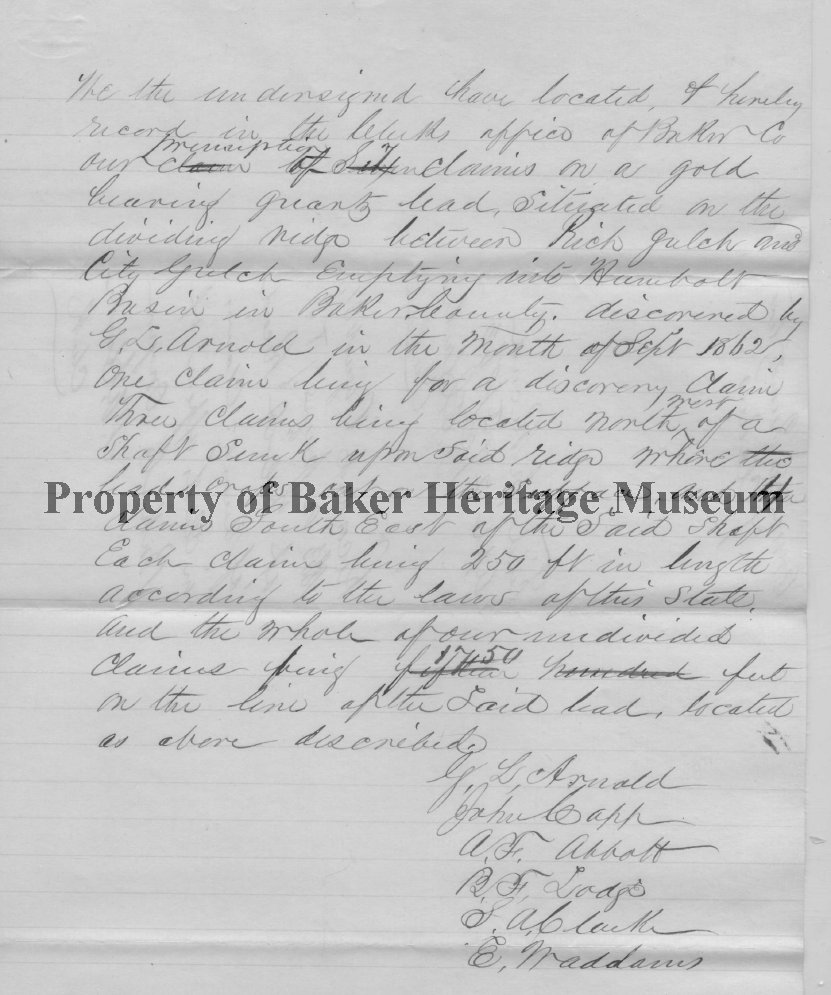 We the undersigned have located, & hereby
record in the Clerks office of Baker Co
our Preemption claim of Seven 7 claims on a gold
bearing quartz lead, Situated on the
dividing ridge between Rich gulch and
City Gulch Emptying into Humbolt
Basin in Baker County. discovered by
G. L. Arnold in the Month of Sept 1862,
One claim being for a discovery Claim
Three claims being located north west of a
Shaft Sunk upon Said ridge where the
lead crops out on the Surface and
Claims South East of the Said Shaft
Property of Baker Heritage Museum
Each claim being 250 ft in length
according to the laws of this State.
and the whole of our undivided
Claims being fifteen hundred 1750 feet
on the line of the Said lead, located
as above described.
G. L. Arnold
John Capp
A. F. Abbott
B. F. Dodge
S. A. Clarke
E. Waddams